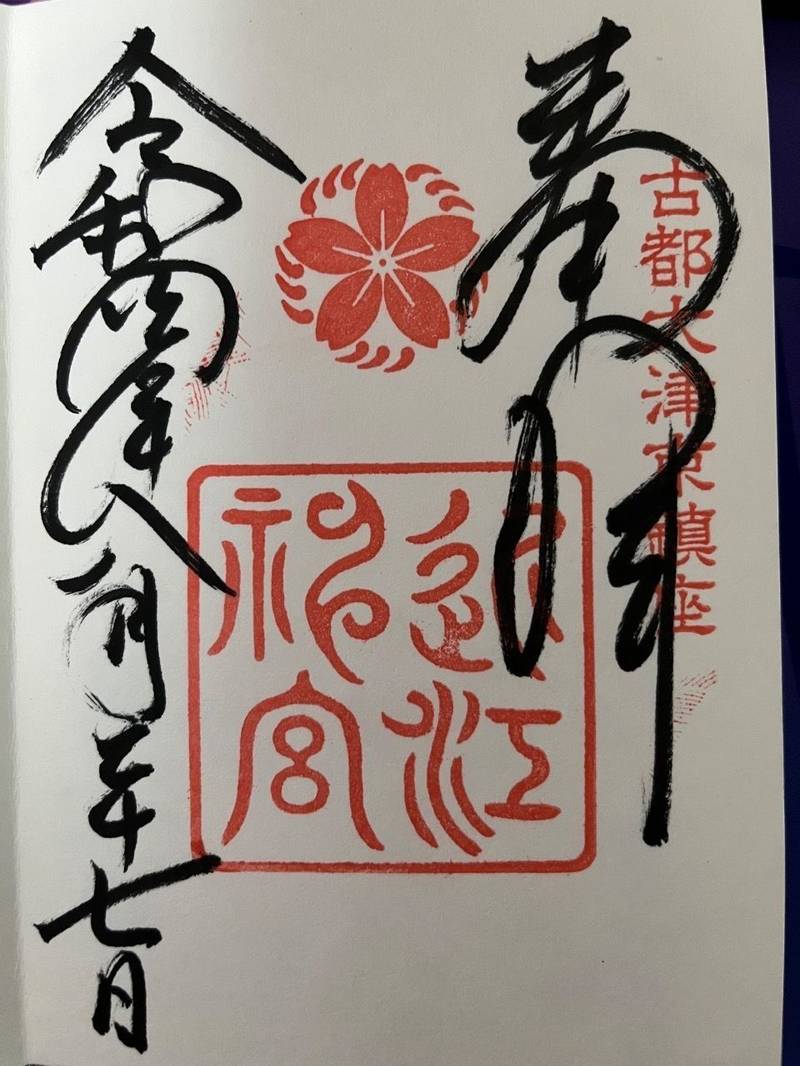 古都大津京鎮座
奉拝
近江
神宮
令和四年八月二十七日